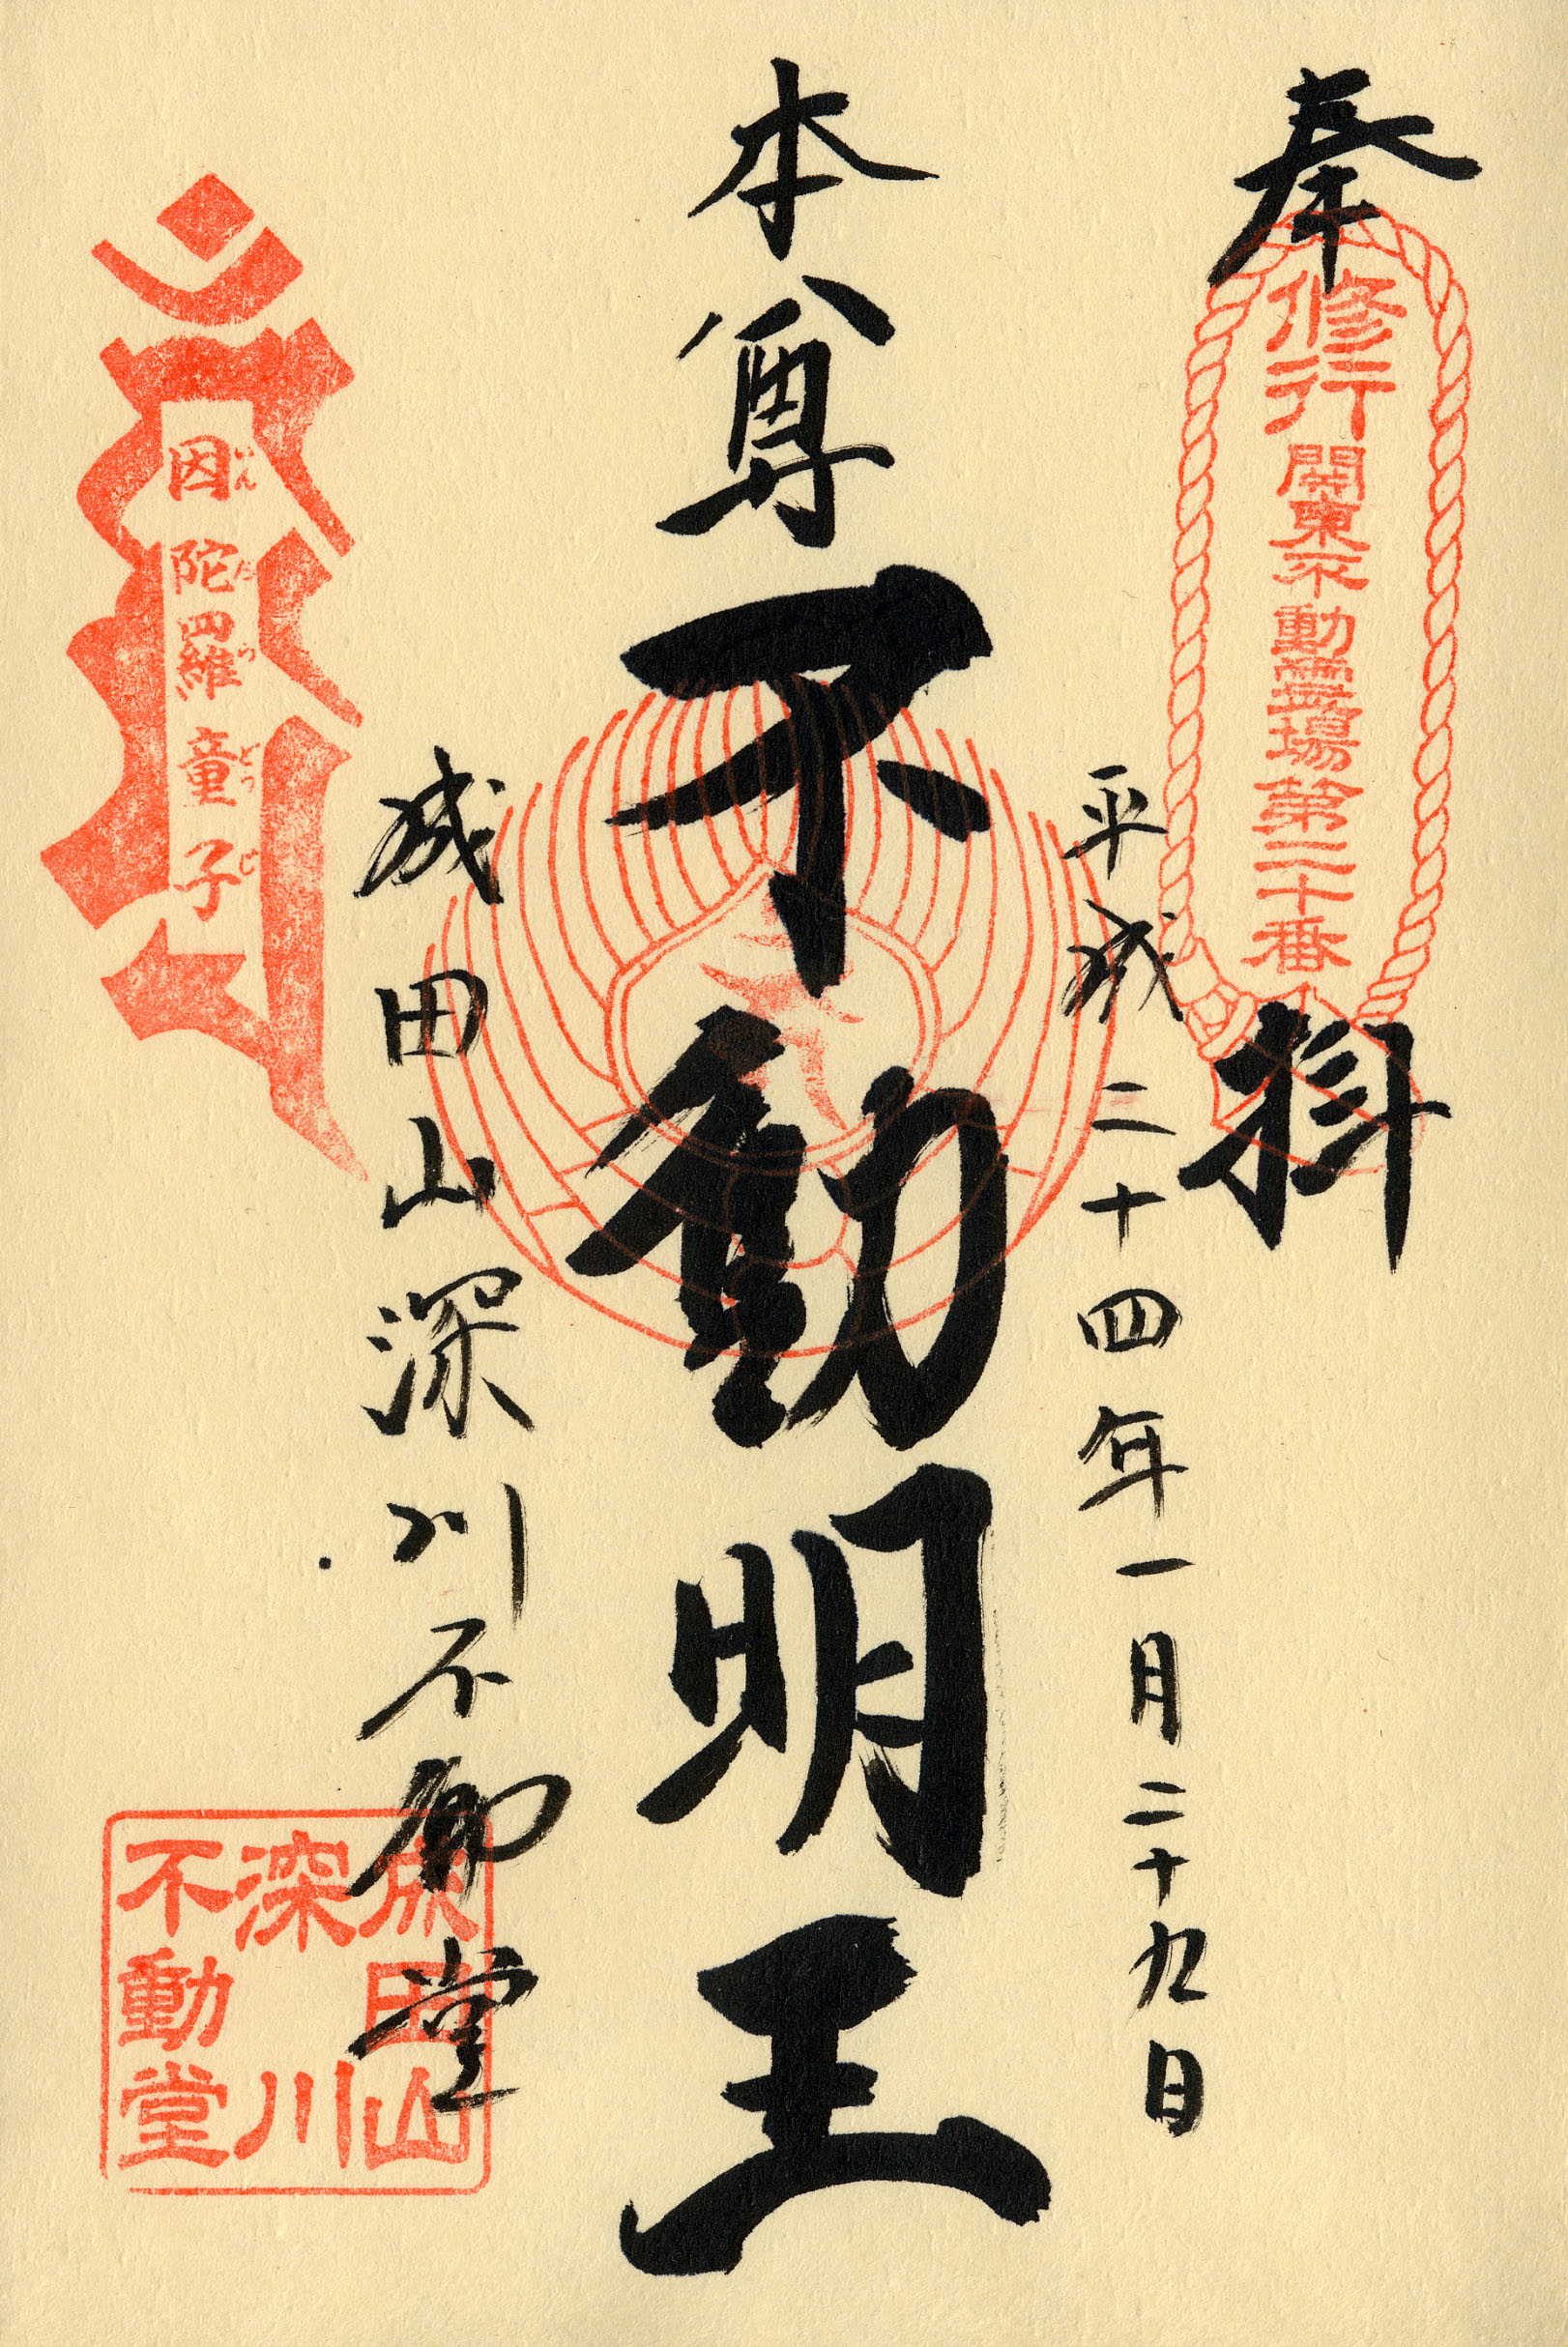 奉拝
修行関東不動霊場第二十番
平成二十四年一月二十九日
本尊不動明王
成田山深川不動堂
因陀羅童子
いんだらどうじ
成田山
深川
不動堂